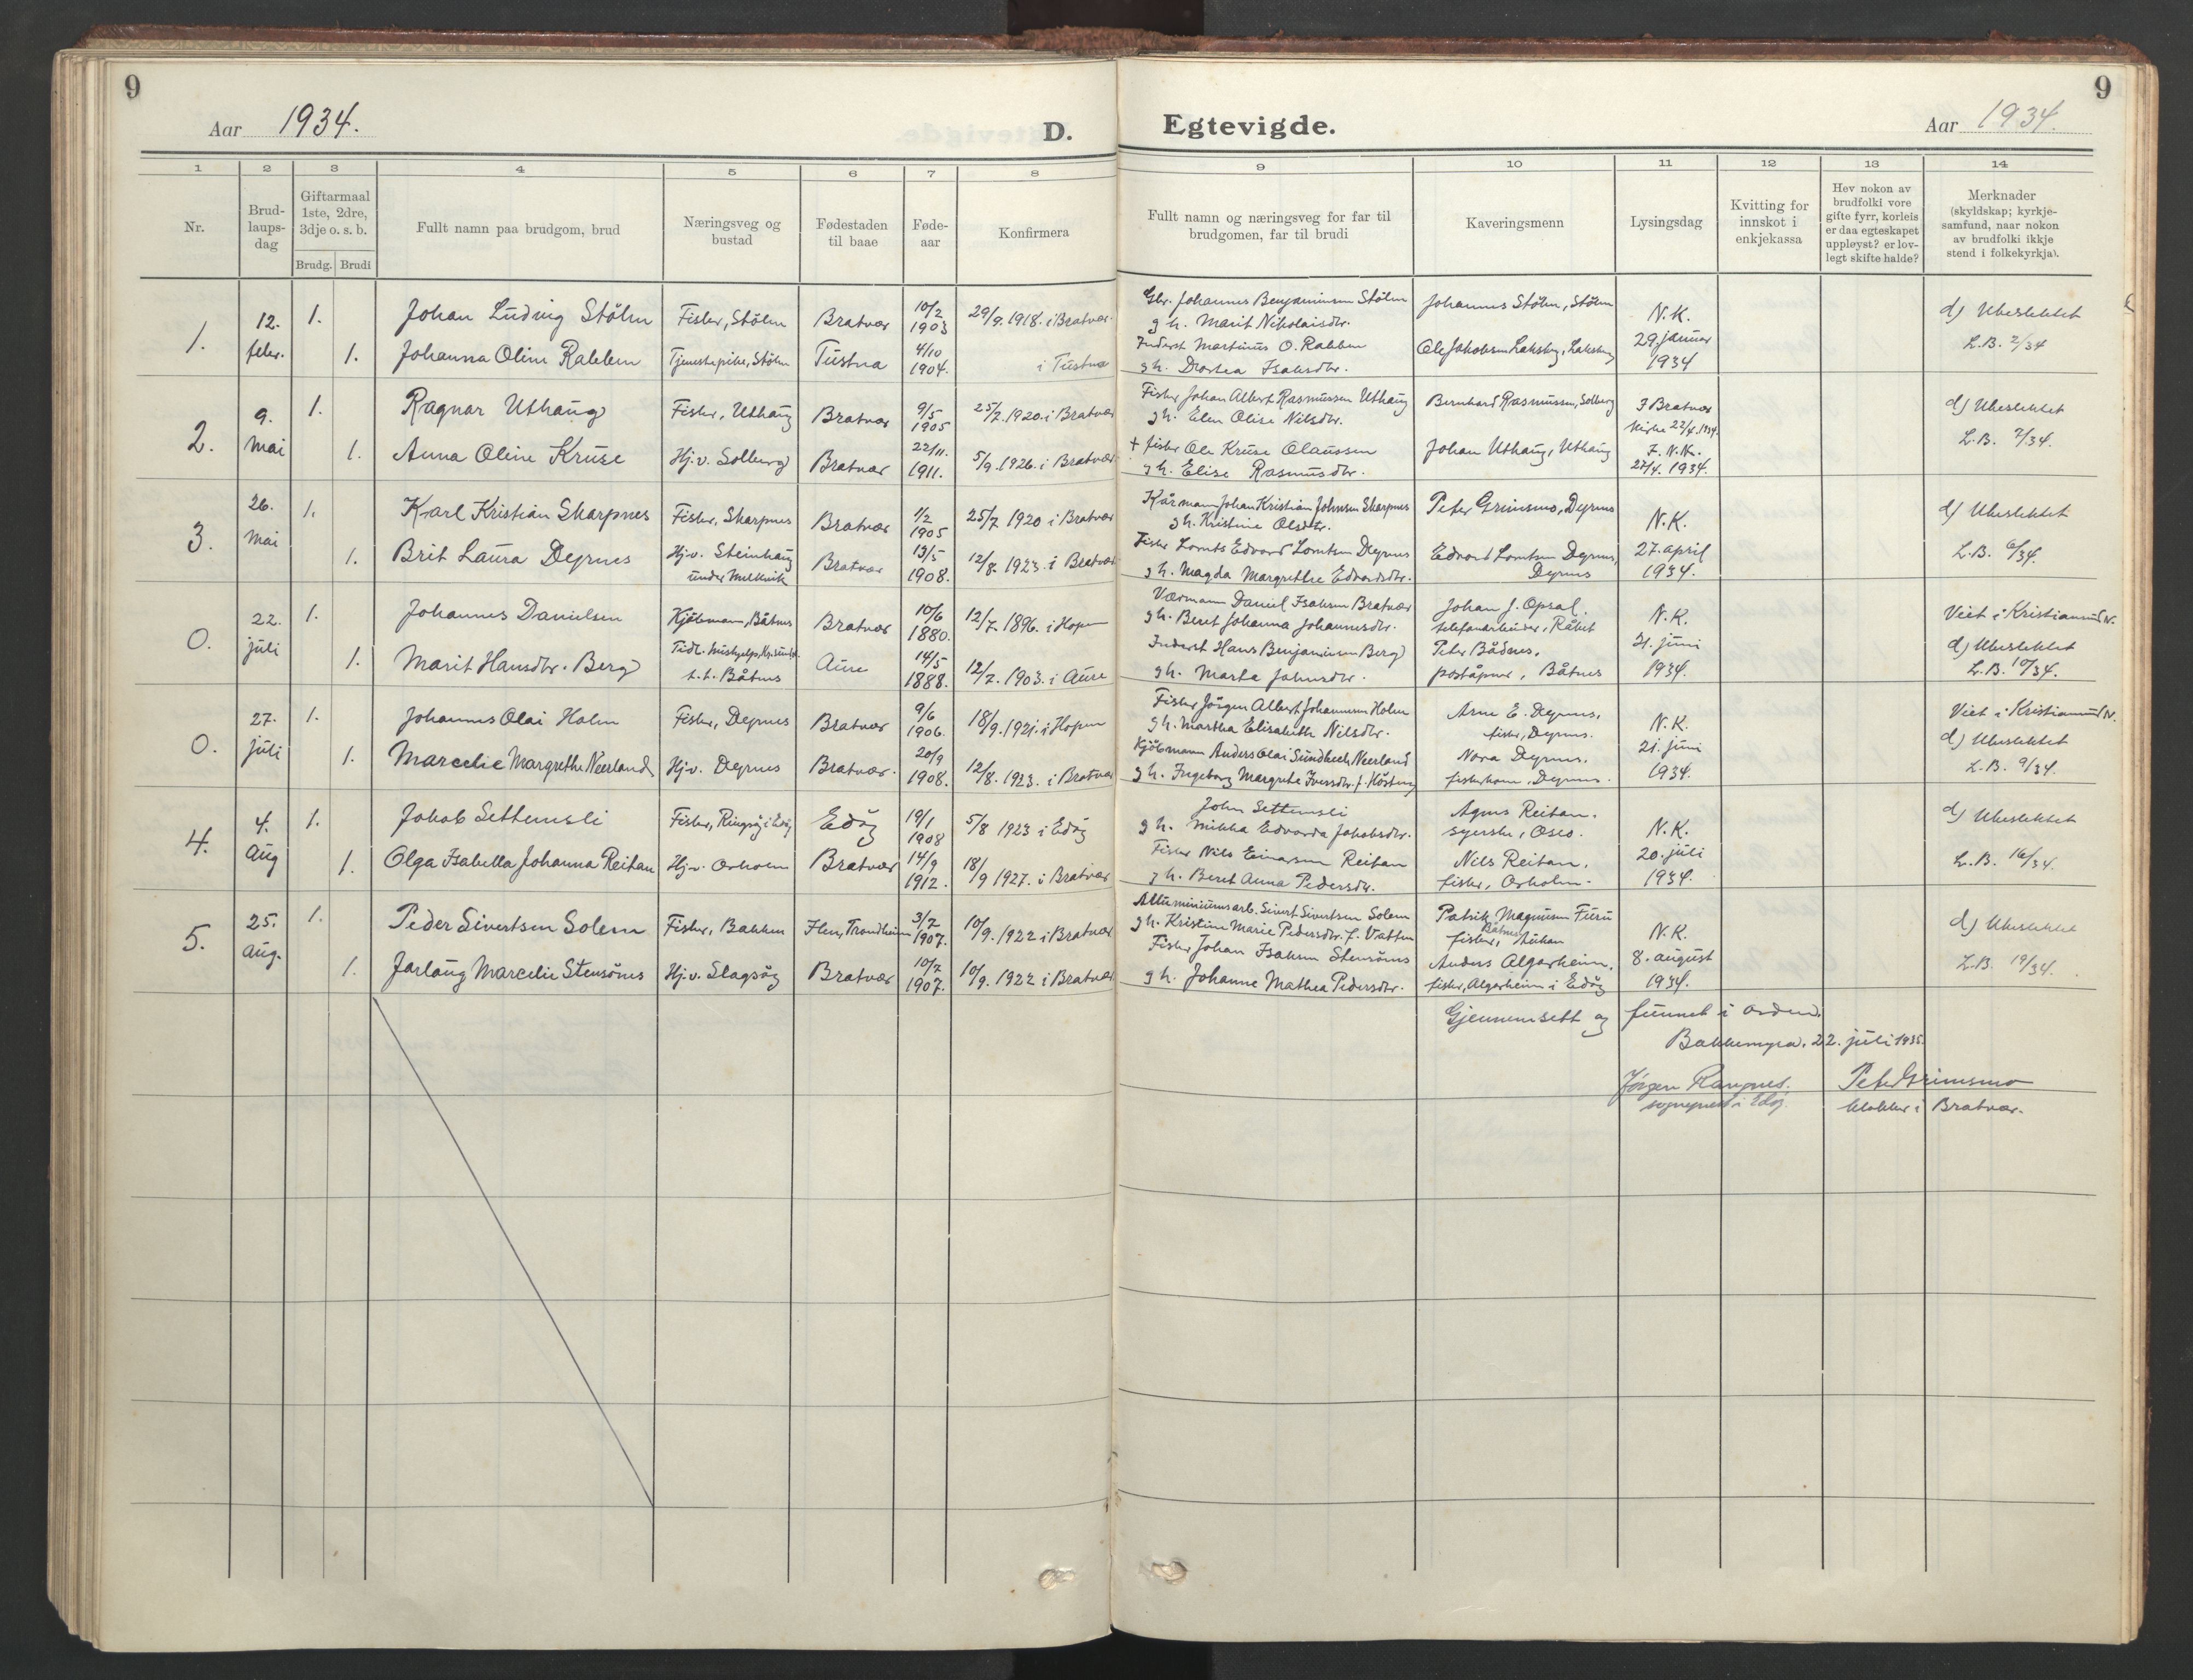 9
Aar 1934.
D.
1 2 3 4 5 6 7 8
Nr.
Brud-
laups-
dag
Giftarmaal
1ste, 2dre,
3dje o. s. b.
Brudg. Brudi
Fullt namn paa brudgom, brud
Næringsveg og
bustad
Fødestaden
til baae
Føde-
aar
Konfirmera
1. 12. febr. 1. Johan Ludvig Stölen Fisker, Stölen Bratvær 10/2 1903 29/9. 1918. i Bratvær.
1. Johanna Oline Rabben Tjenestepike, Stölen Tustna 4/10 1904. i Tustna
2. 9. mai 1. Ragnar Uthaug Fisker, Uthaug Bratvær 9/5 1905 25/7. 1920. i Bratvær
1. Anna Oline Kruse Hj.v. Solberg Bratvær 22/11. 1911. 5/9. 1926. i Bratvær
3. 26. mai 1. Karl Kristian Skarpnes Fisker, Skarpnes Bratvær 1/2 1905 25/7 1920 i Bratvær
1. Brit Laura Dyrnes Hj.v. Steinhaug under Melkvik Bratvær 13/5 1908. 12/8. 1923. i Bratvær
0. 22. juli 1. Johannes Danielsen Kjöbmann, Båtnes Bratvær 10/6 1880. 12/7. 1896. i Hopen
1. Marit Hansdtr. Berg Tidl. hushjelp, Kr.sund. t.t. Båtnes Aure 14/5 1888. 12/7. 1903. i Aure
0. 27. juli 1. Johannes Olai Holm Fisker, Dyrnes Bratvær 9/6 1906. 18/9. 1921. i Hopen
1. Marcelie Margrethe Neerland Hj.v. Dyrnes Bratvær. 20/9 1908. 12/8. 1923. i Bratvær
4. 4. Aug 1. Jakob Settemsli Fisker, Ringsöy i Edöy Edöy 19/1 1908 5/8 1923 i Edöy
1. Olga Isabella Johanna Reitan Hj.v. Orholm Bratvær 14/9 1912. 18/9 1927. i Bratvær
5. 25. Aug. 1. Peder Sivertsen Solem Fisker, Bakken Ilen, Trondheim 3/7 1907. 10/9. 1922 i Bratvær
1. Jarlaug Marcelie Stensönes Hj.v. Slagsöy Bratvær 10/7 1907. 10/9. 1922 i Bratvær
9
Egtevigde.
Aar 1934.
9 10 11 12 13 14
Fullt namn og næringsveg for far til
brudgomen, far til brudi
Kaveringsmenn
Lysingsdag
Kvitting for
innskot i
enkjekassa
Hev nokon av
brudfolki vore
gifte fyrr, korleis
er daa egteskapet
uppløyst? er lov-
legt skifte halde?
Merknader
(skyldskap; kyrkje-
samfund, naar nokon
av brudfolki ikkje
stend i folkekyrkja).
Gbr. Johannes Benjaminsen Stölen
g h. Marit Nikolaisdtr.
Johannes Stölen, Stölen
Inderst Martinus O. Rabben
g h. Dortea Isaksdtr.
Ole Jakobsen Laksberg, Laksberg
N.K.
29 januar
1934
d) Ubeslektet
L.B. 2/34
Fisker Johan Albert Rasmussen Uthaug
g h. Elen Olise Nilsdtr.
Bernhard Rasmussen, Solberg
+ fisker Ole Kruse Olaussen
g h. Elise Rasmusdtr.
Johan Uthaug, Uthaug
I Bratvær
kirke 22/4. 1934.
I. N.K.
27/4. 1934.
d) Ubeslektet
L.B. 7/34.
Kårmann Johan Kristian Johnsen Skarpnes
g h. Kristine Olsdtr.
Peter Grimsmo, Dyrnes
Fisker Lornts Edvard Lorntsen Dyrnes
g h. Magda Margrethe Edvardsdtr.
Edvard Lorntsen Dyrnes,
Dyrnes
N.K.
27. april
1934.
d) Ubeslektet
L.B. 6/34.
Værmann Daniel Isaksen Bratvær
g h. Beret Johanna Johannesdtr.
Johan J. Opsal.
telefonarbeider, Råket
Inderst Hans Benjaminsen Berg
g h. Marta Johnsdtr.
Peter Bådnes,
poståpner, Båtnes
N.K.
21. juni
1934.
Viet i Kristiansund N.
d) Ubeslektet
L.B. 10/34.
Fisker Jörgen Albert Johannesen Holm
g h. Martha Elisabeth Nilsdtr.
Arne E. Dyrnes,
fisker, Dyrnes.
Kjöbmann Anders Olai Sundbech Neerland
g h. Ingeborg Margrete Iversdtr. f. Hösteng
Nora Dyrnes,
fiskerkone, Dyrnes.
N.K.
21. juni
1934.
Viet i Kristiansund N.
d) Ubeslektet
L.B. 9/34.
John Settemsli
g h. Mikka Edvarda Jakobsdtr.
Agnes Reitan.
syerske, Oslo.
Fisker Nils Einarsen Reitan
g h. Beret Anna Pedersdtr.
Nils Reitan.
fisker, Orholm.
N.K.
20. juli
1934.
d) Ubeslektet
L.B. 16/34.
Alluminiumsarb. Sivert Sivertsen Solem
g h. Kristine Marie Pedersdtr. f. Vatten
Patrik Magnusen Furu
Båtnes
fisker,
Fisker Johan Isaksen Stensönes
g h. Johanne Mathea Pedersdtr.
Anders Algarheim,
fisker, Algarheim i Edöy
N.K.
8. august
1934.
d) Ubeslektet
L.B. 19/34.
Gjennemsett og funnet i orden.
Bakkemyra, 22. juli 1935.
Jörgen Rangnes. Peter Grimsmo
sogneprest i Edöy. klokker i Bratvær.